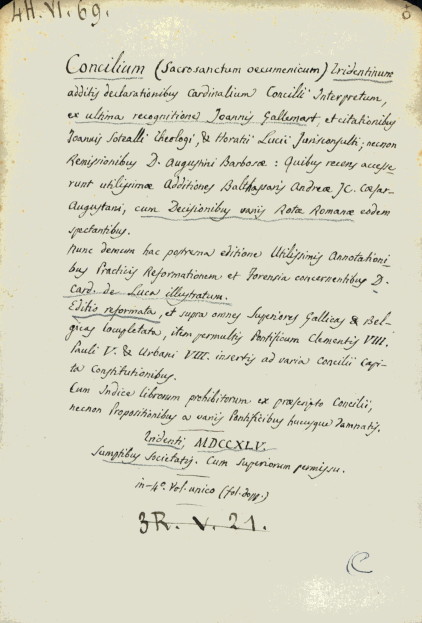 4H. VI. 69.
Concilium (Sacrosanctum oecumenicum) Tridentinum
additis declarationibus Cardinalium Concilii Interpretum,
ex ultima recognitione Joannis Gallemart, et citationibus
Joannis Sotealli theologi, & Horatii Lucii Jurisconsulti; necnon
Remissionibus D. Augustini Barbosæ: Quibus recens accesse
runt utilissimæ Additiones Balthassaris Andreæ JC. Cæsar-
Augustani, cum Decisionibus variis Rotæ Romanæ eodem
spectantibus.
Nunc demum hac postrema editione Utilissimis Annotationi
bus Practicis Reformationem et Forensia concernentibus D.
Card. de Luca illustratum.
Editio reformata, et supra omnes Superiores Gallicas & Bel-
gicas locupletata, item permultis Pontificum Clementis VIII.
Pauli V. & Urbani VIII. insertis ad varia Concilii Capi-
ta Constitutionibus.
Cum Indice librorum prohibitorum ex præscripto Concilii,
necnon Propositionibus a variis Pontificibus hucusque Damnatis.
Tridenti, MDCCXLV.
Sumptibus Societatis. Cum Superiorum permissu.
in-4º. Vol. unico (fol. dopp.)
3R. V. 21.